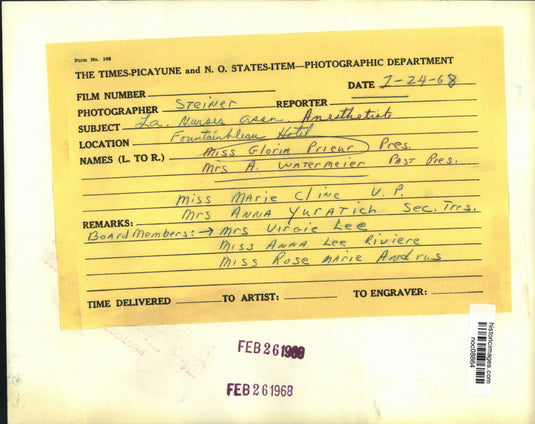 Form No. 108
THE TIMES-PICAYUNE and N. O. STATES-ITEM—PHOTOGRAPHIC DEPARTMENT
FILM NUMBER
DATE 2-24-68
PHOTOGRAPHER Steiner REPORTER
SUBJECT La. Nurses Assn. Anesthetists
LOCATION Fountainbleau Hotel
NAMES (L. TO R.) Miss Gloria Prieur Pres.
Mrs A. Watermeier Past Pres.
Miss Marie Cline V.P.
Mrs Anna Yuratich Sec. Tres.
REMARKS:
Board Members: → Mrs Virgie Lee
Miss Anna Lee Riviere
Miss Rose Marie Andrus
TIME DELIVERED TO ARTIST: TO ENGRAVER:
FEB 26 1968
FEB 26 1968
historicimages.com
noc08864